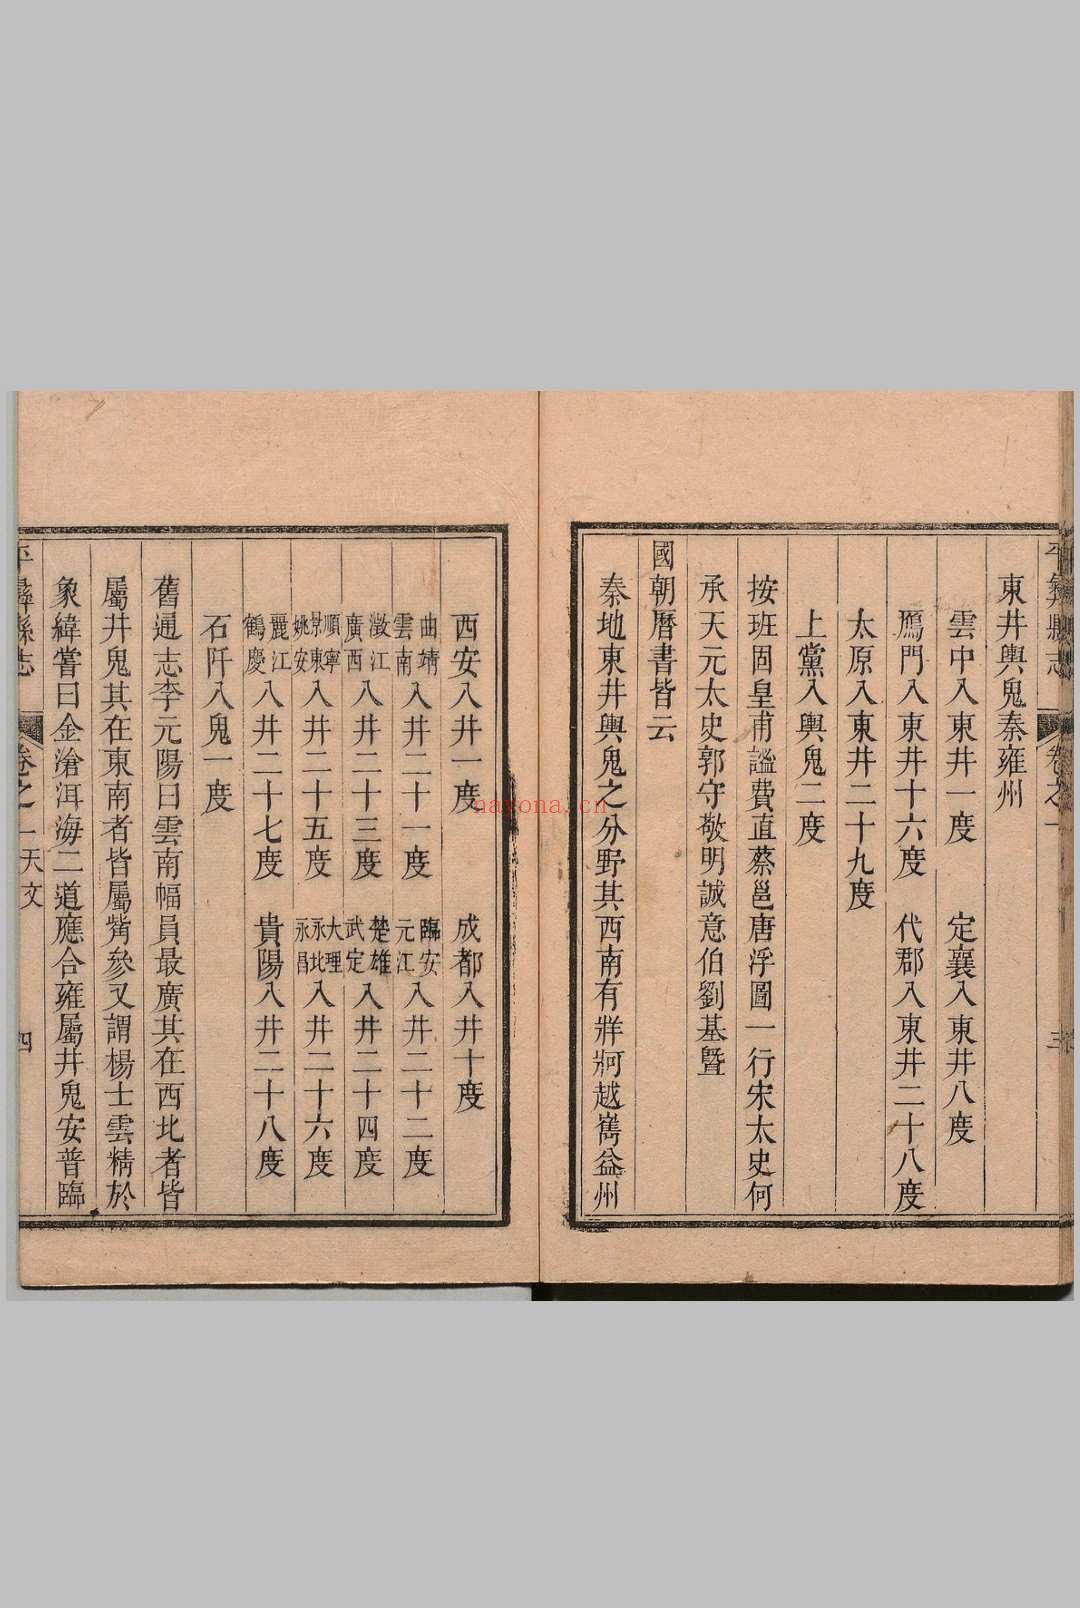 平彝縣志 卷之一 三
東井輿鬼秦雍州
雲中入東井一度 定襄入東井八度
鴈門入東井十六度 代郡入東井二十八度
太原入東井二十九度
上黨入輿鬼二度
按班固皇甫謐費直蔡邕唐浮圖一行宋太史何
承天元太史郭守敬明誠意伯劉基暨
國朝曆書皆云
秦地東井輿鬼之分野其西南有牂牁越嶲益州
西安入井一度 成都入井十度
曲靖雲南入井二十一度 臨安元江入井二十二度
澂江廣西入井二十三度 楚雄武定入井二十四度
順寧景東姚安入井二十五度 大理永北永昌入井二十六度
麗江鶴慶入井二十七度 貴陽入井二十八度
石阡入鬼一度
舊通志李元陽曰雲南幅員最廣其在西北者皆
屬井鬼其在東南者皆屬觜參又謂楊士雲精於
象緯嘗曰金滄洱海二道應合雍屬井鬼安普臨
平彝縣志 卷之一 天文 四
nayona.cn